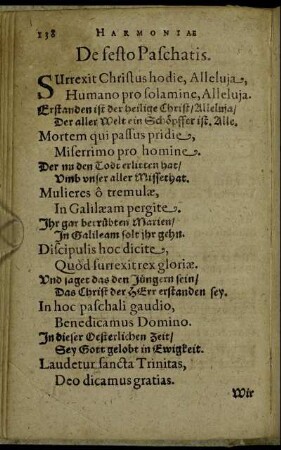 138 HARMONIAE
De festo Paschatis.
SUrrexit Christus hodie, Alleluja,
Humano pro solamine, Alleluja.
Erstanden ist der heilige Christ/ Alleluia/
Der aller Welt ein Schöpffer ist. Alle.
Mortem qui passus pridie,
Miserrimo pro homine.
Der nu den Todt erlitten hat/
Umb unser aller Missethat.
Mulieres ô tremulæ,
In Galilæam pergite.
Ihr gar betrübten Marien/
In Galileam solt ihr gehn.
Discipulis hoc dicite,
Quòd surrexit rex gloriæ.
Und saget das den Jüngern sein/
Das Christ der HErr erstanden sey.
In hoc paschali gaudio,
Benedicamus Domino.
In dieser Oesterlichen Zeit/
Sey Gott gelobt in Ewigkeit.
Laudetur sancta Trinitas,
Deo dicamus gratias.
Wir